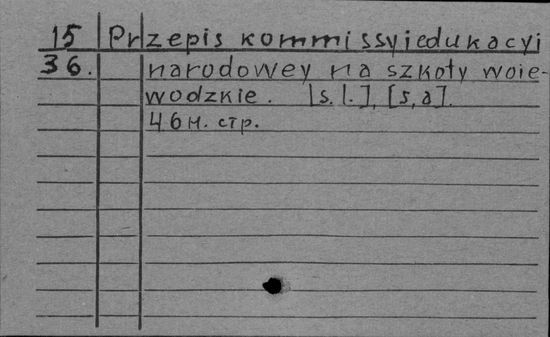 15 Przepis kommissyi edukacyi
36. narodowey na szkoły woie-
wodzkie. [s. l.], [s, a].
46 н. стр.